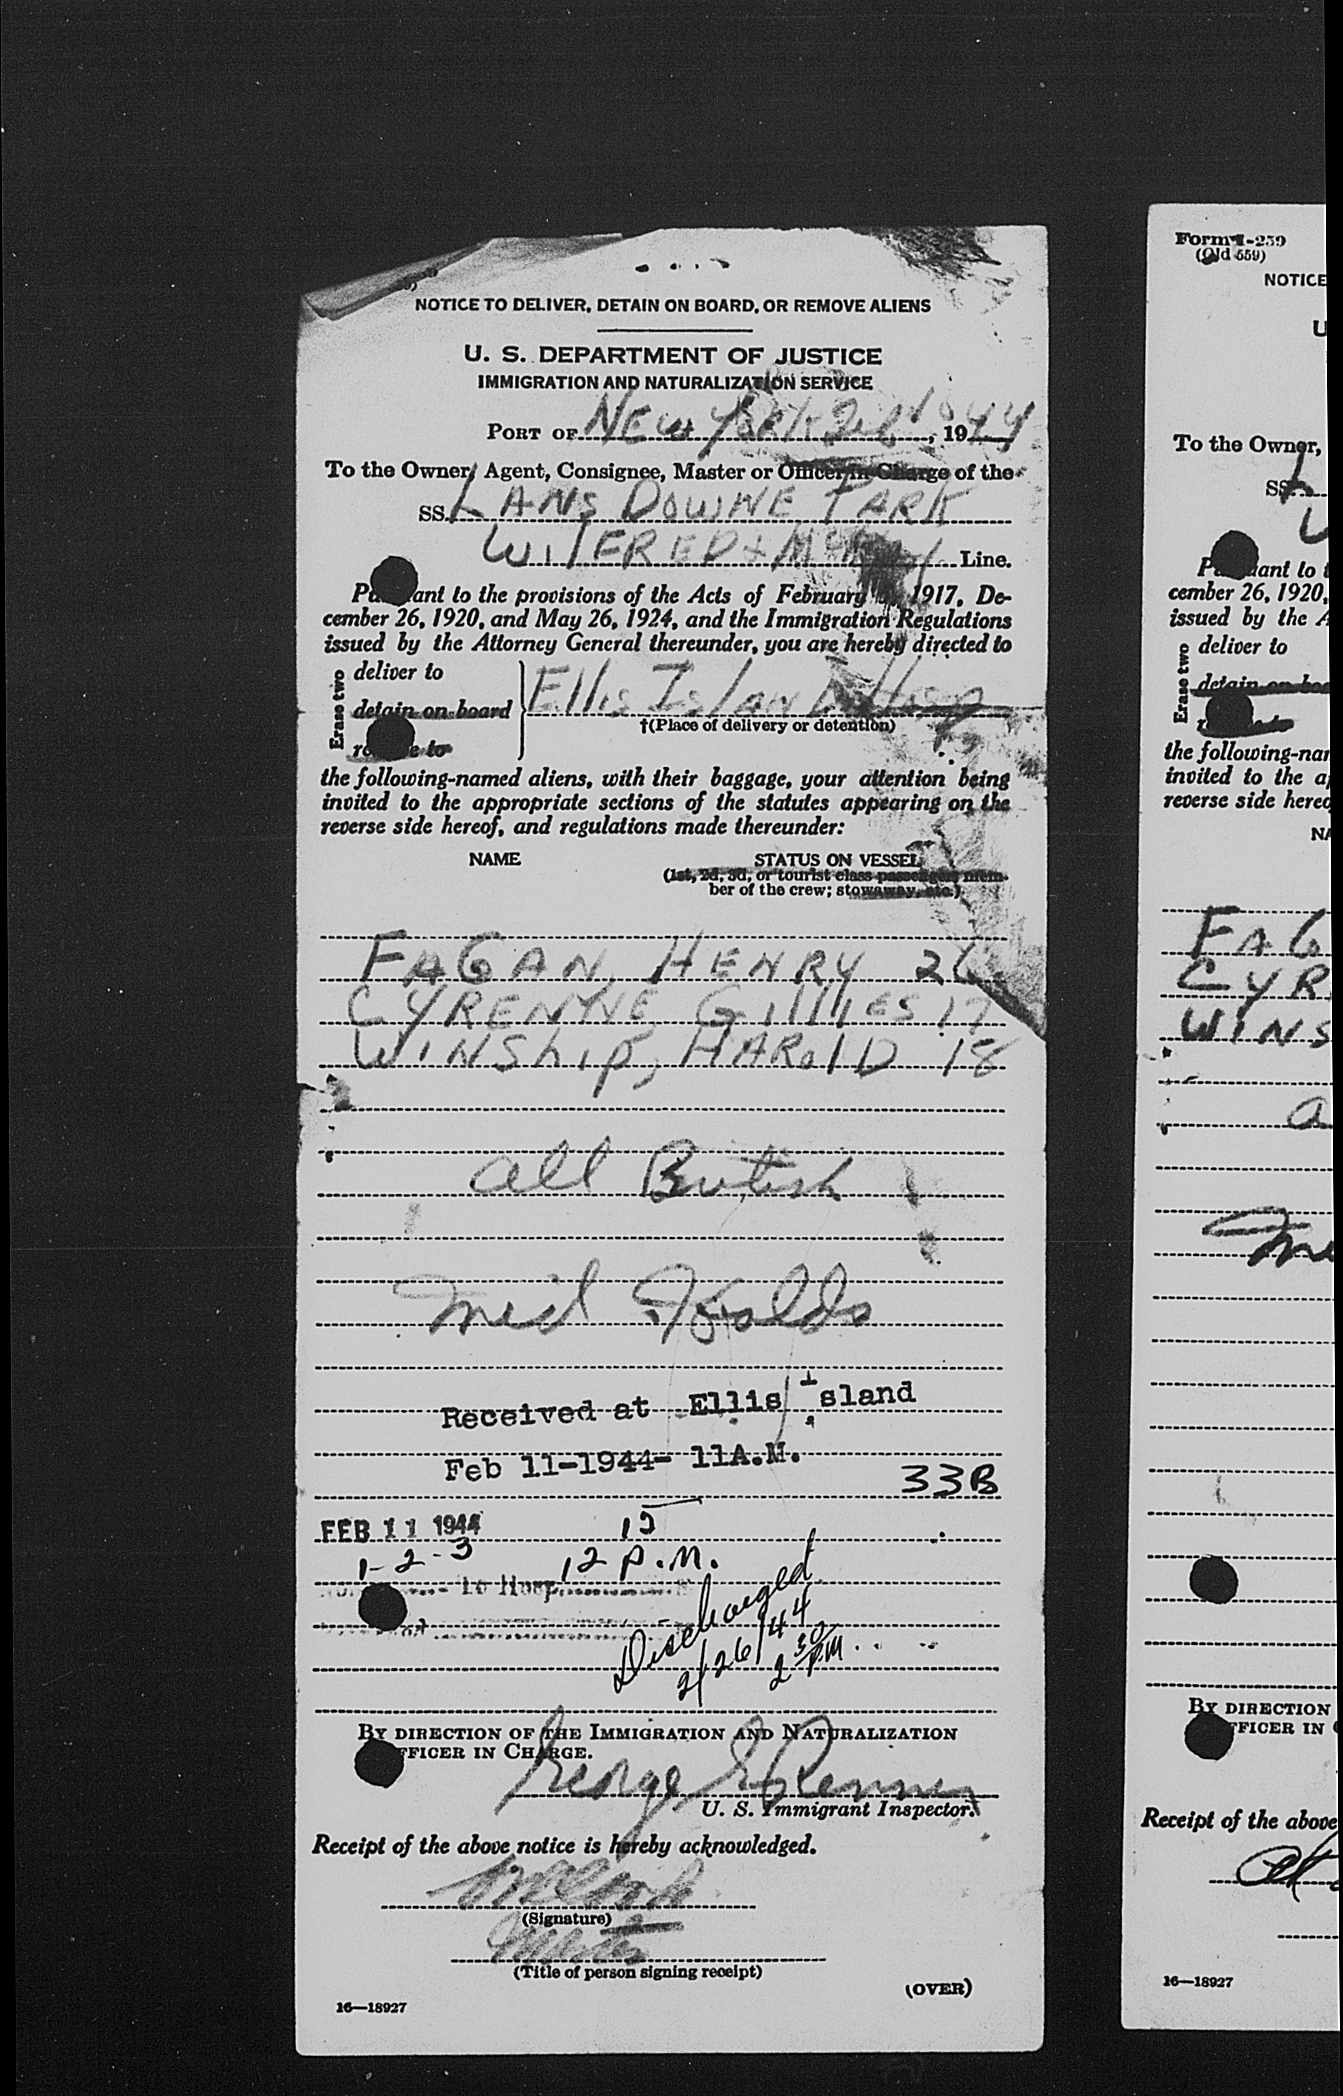 NOTICE TO DELIVER, DETAIN ON BOARD, OR REMOVE ALIENS
U. S. DEPARTMENT OF JUSTICE
IMMIGRATION AND NATURALIZATION SERVICE
PORT OF NEW YORK Feb 1944
To the Owner, Agent, Consignee, Master or Officer in Charge of the
SS. LANSDOWNE PARK
WILFRED Line.
ant to the provisions of the Acts of February 1917, De-
cember 26, 1920, and May 26, 1924, and the Immigration Regulations
issued by the Attorney General thereunder, you are hereby directed to
Erase two
deliver to
detain on board
to
Ellis Island Hosp
†(Place of delivery or detention)
the following-named aliens, with their baggage, your attention being
invited to the appropriate sections of the statutes appearing on the
reverse side hereof, and regulations made thereunder:
NAME STATUS ON VESSEL
(1st, 2d, 3d, or tourist class passenger; mem-
ber of the crew; stowaway, etc.)
FAGAN, HENRY 26
CYRENNE GILLIES 17
WINSHIP, HAROLD 18
all British
Med Holds
Received at Ellis Island
Feb 11-1944- 11A.M.
33B
FEB 11 1944 15
1-2-3 12 P.M.
to Hosp.
Discharged
2/26/44
2 30 P.M
BY DIRECTION OF THE IMMIGRATION AND NATURALIZATION
FFICER IN CHARGE.
George
U. S. Immigrant Inspector.
Receipt of the above notice is hereby acknowledged.
(Signature)
Master
(Title of person signing receipt)
(OVER)
16—18927
Form I-259
(Old 559)
NOTICE
U
To the Owner,
SS. L
W
ant to
cember 26, 1920,
issued by the A
Erase two
deliver to
detain on boa
the following-nam
invited to the ap
reverse side hereo
NA
FAG
CYR
WINS
a
Me
BY DIRECTION
FFICER IN
Receipt of the above
16—18927